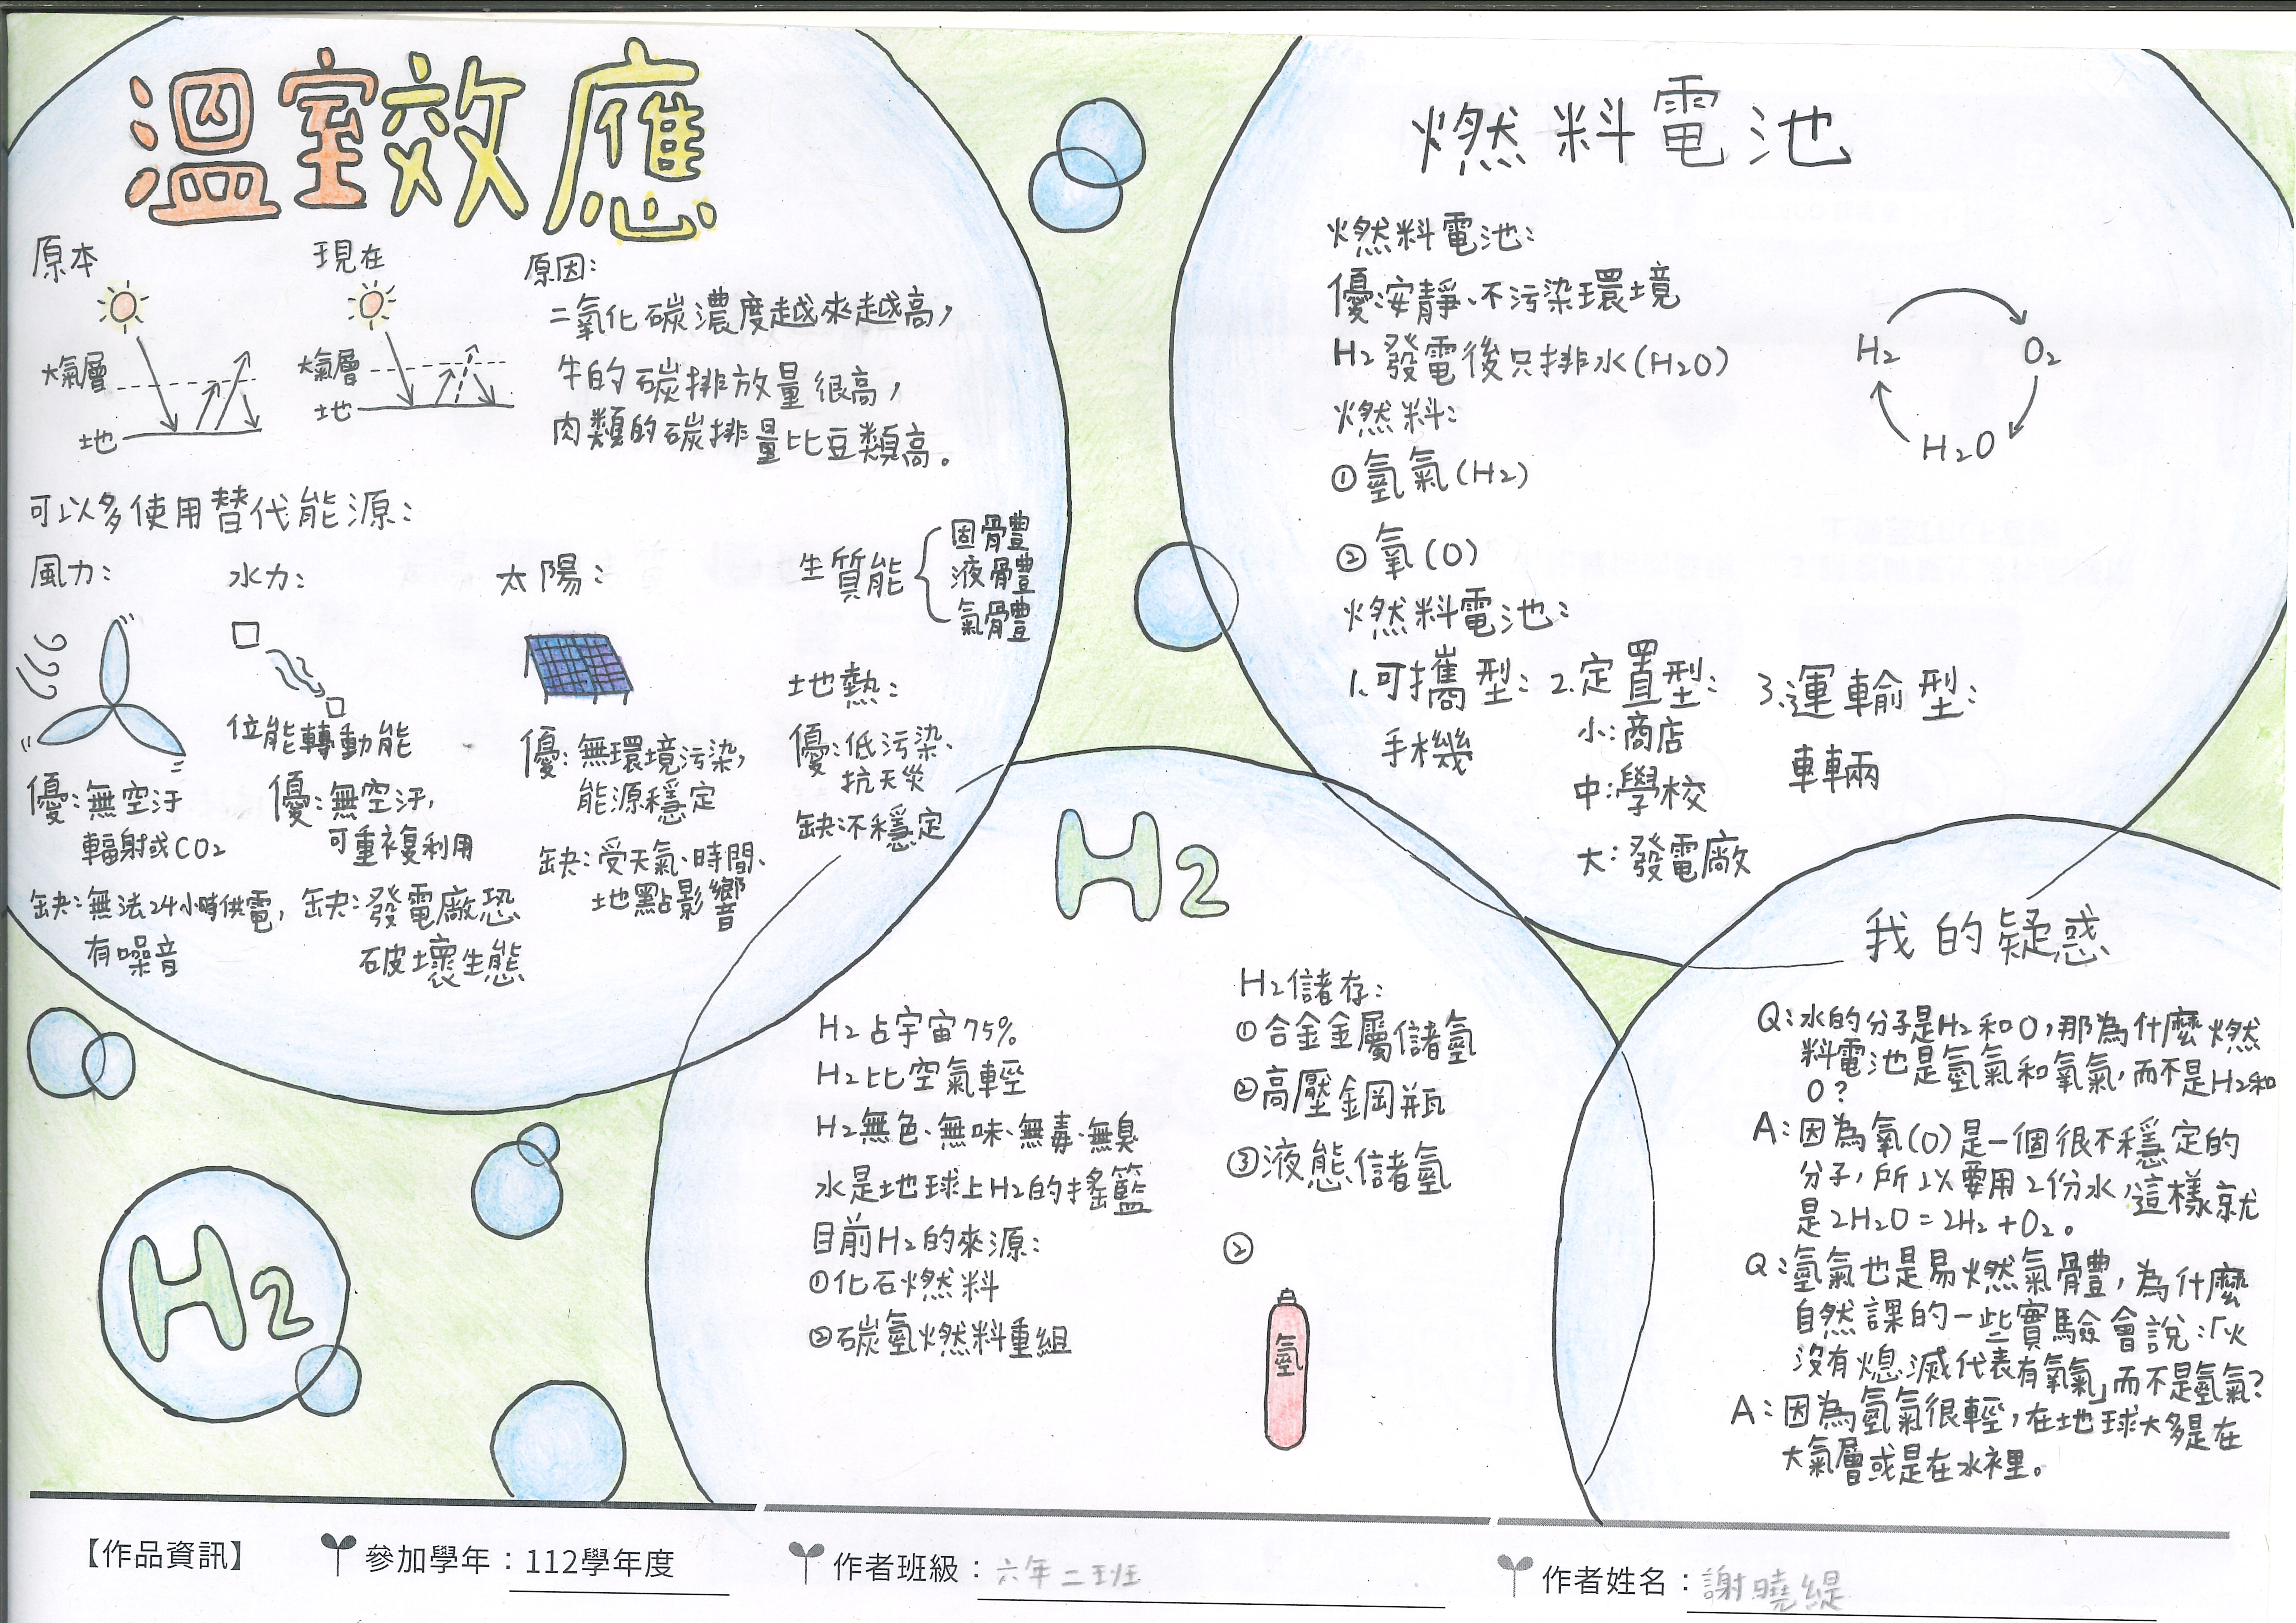 溫室效應
原本
大氣層
地
現在
大氣層
地
原因:
二氧化碳濃度越來越高,
牛的碳排放量很高,
肉類的碳排量比豆類高。
可以多使用替代能源:
風力:
優:無空汙
輻射或CO2
缺:無法24小時供電,
有噪音
水力:
位能轉動能
優:無空汙,
可重複利用
缺:發電廠恐
破壞生態
太陽:
優:無環境污染,
能源穩定
缺:受天氣、時間、
地點影響
生質能
固體
液體
氣體
地熱:
優:低污染、
抗天災
缺:不穩定
燃料電池
燃料電池:
優:安靜、不污染環境
H2發電後只排水(H2O)
燃料:
①氫氣(H2)
②氧(O)
H2
O2
H2O
燃料電池:
1.可攜型:
手機
2.定置型:
小:商店
中:學校
大:發電廠
3.運輸型:
車輛
H2
H2占宇宙75%
H2比空氣輕
H2無色、無味、無毒、無臭
水是地球上H2的搖籃
目前H2的來源:
①化石燃料
②碳氫燃料重組
H2儲存:
①合金金屬儲氫
②高壓鋼瓶
③液態儲氫
②
氫
我的疑惑
Q:水的分子是H2和O,那為什麼燃
料電池是氫氣和氧氣,而不是H2和
O?
A:因為氧(O)是一個很不穩定的
分子,所以要用2份水,這樣就
是2H2O=2H2+O2。
Q:氫氣也是易燃氣體,為什麼
自然課的一些實驗會說:「火
沒有熄滅代表有氧氣」而不是氫氣?
A:因為氫氣很輕,在地球大多是在
大氣層或是在水裡。
H2
【作品資訊】
參加學年:112學年度
作者班級:六年二班
作者姓名:謝曉緹